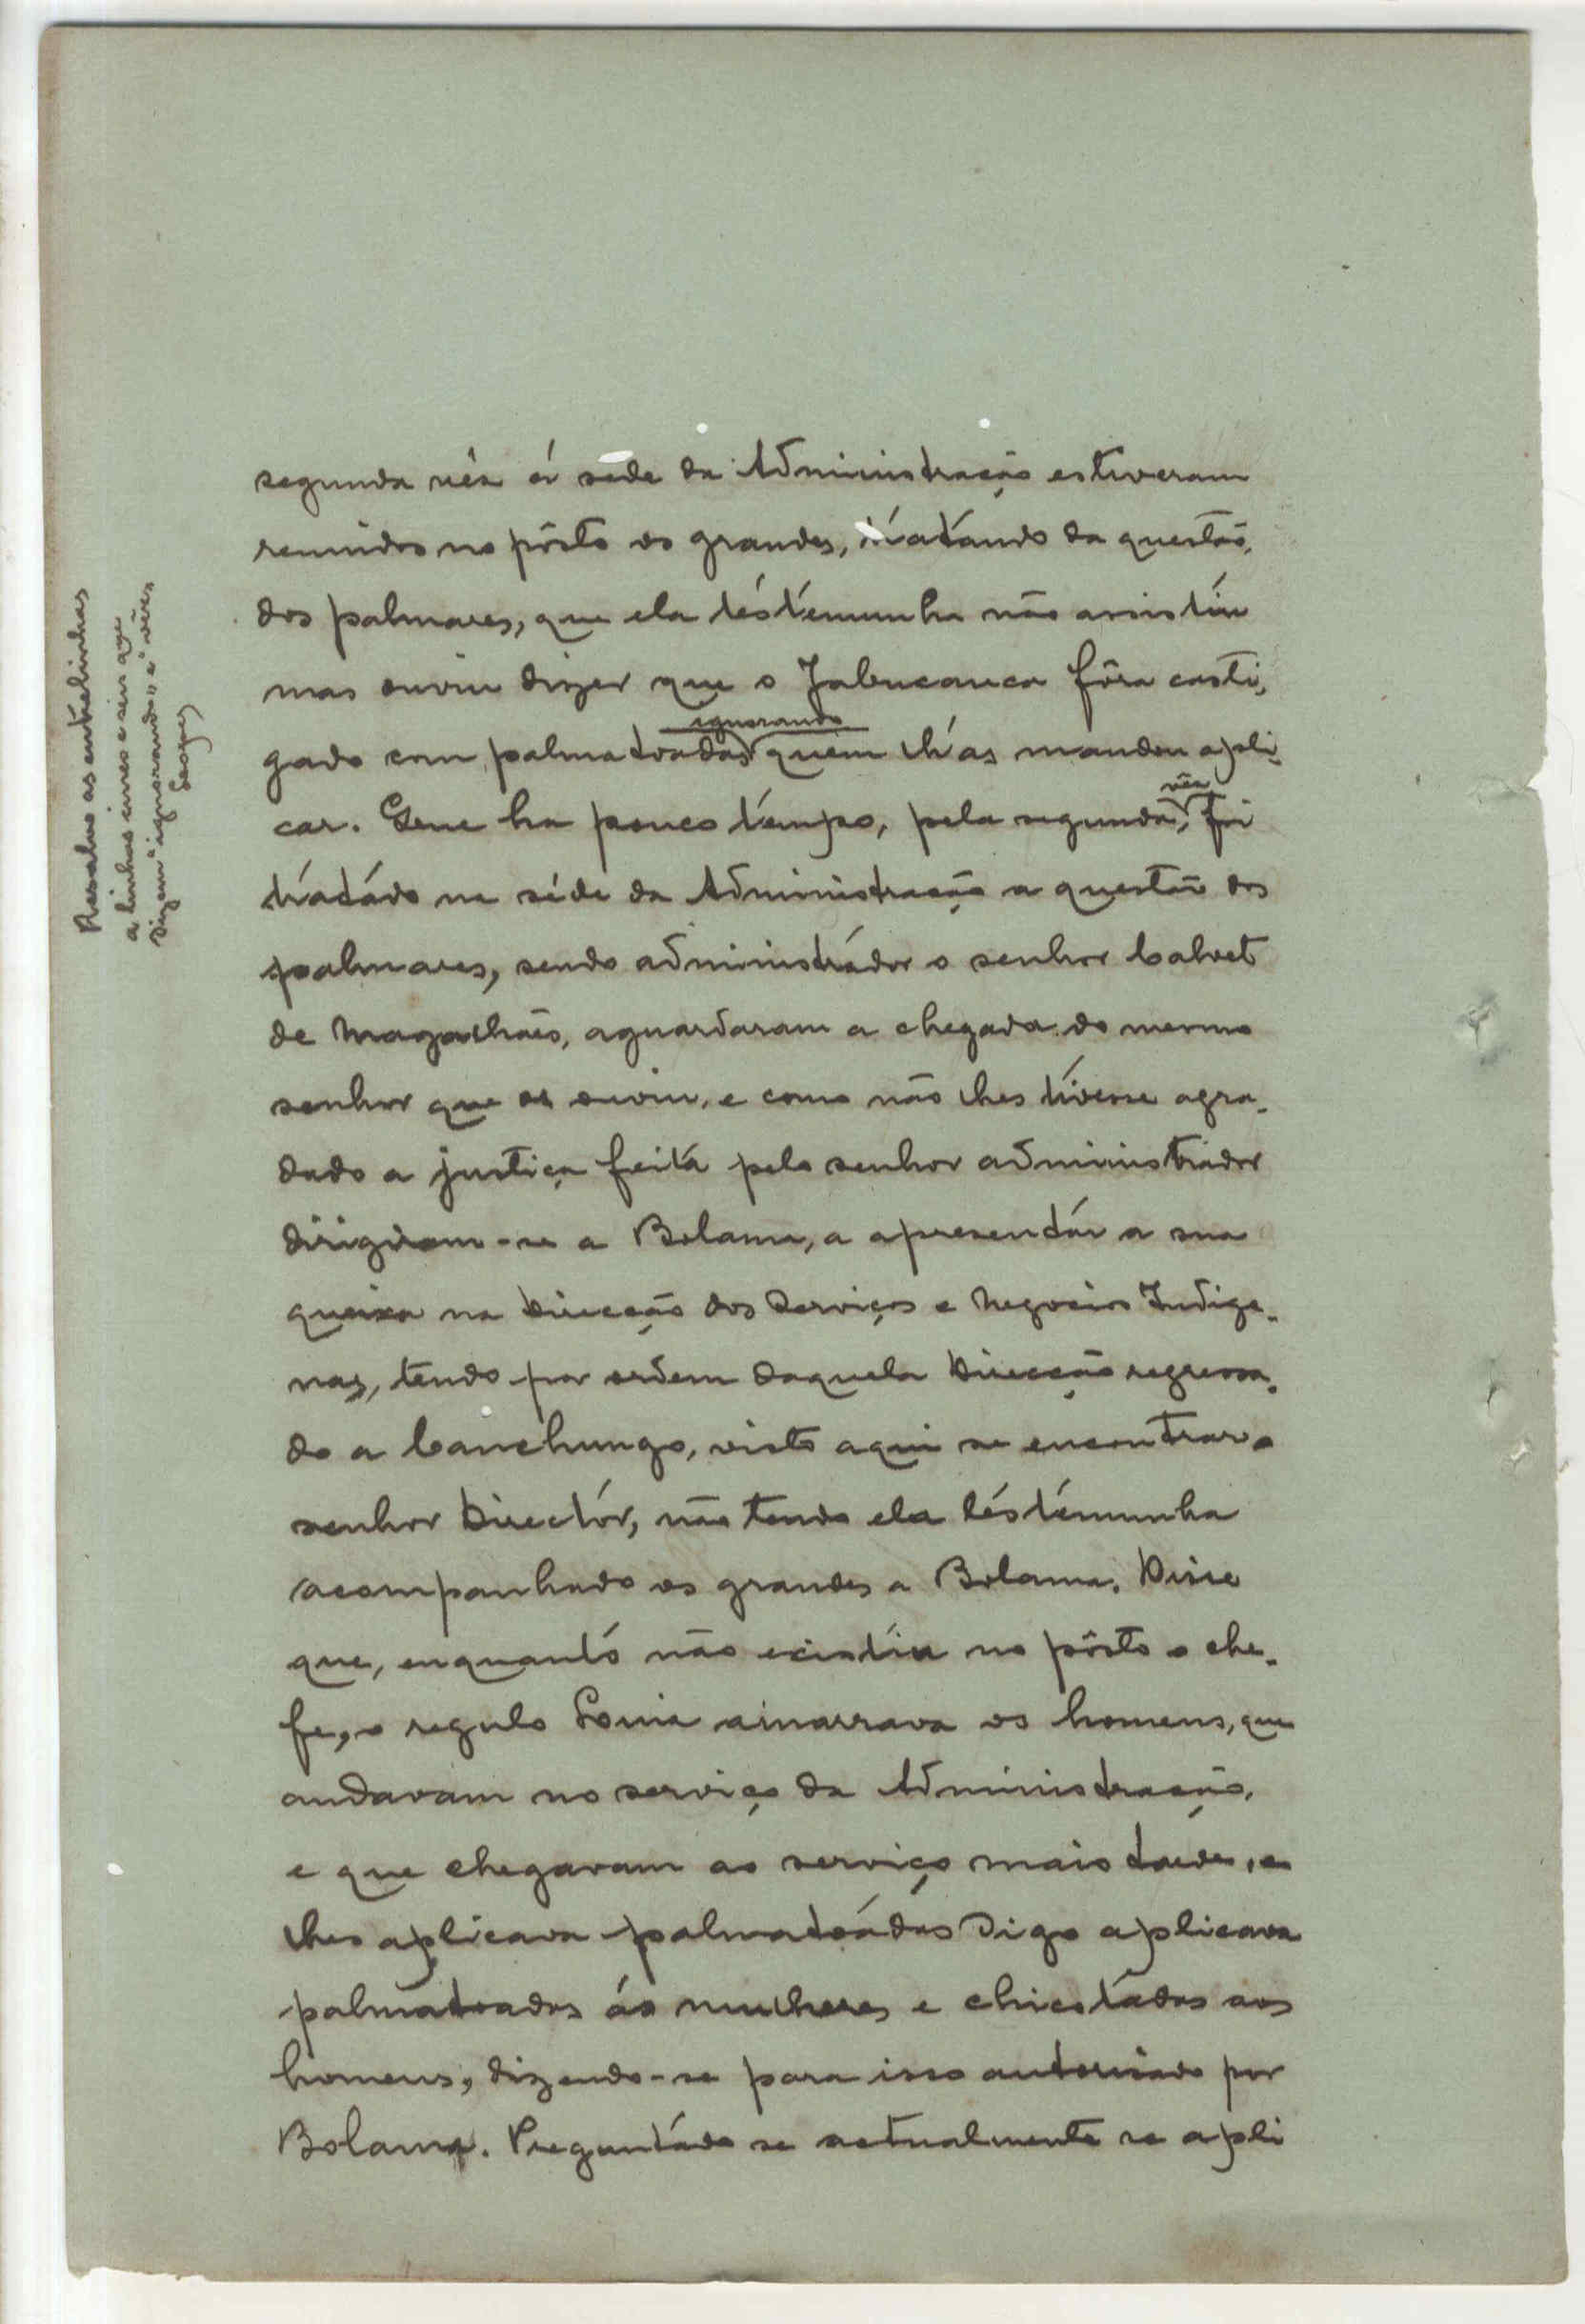 segunda vês á séde da Administração estiveram
reunidos no pôsto os grandes, tratando da questão,
dos palmares, que ela testemunha não assistiu
mas ouviu dizer que o Jabucanca fôra casti-
gado com palmatoadas ignorando quem lh'as mandou apli-
car. Que ha pouco tempo, pela segunda vês, foi
tratado na séde da Administração a questão dos
palmares, sendo administrador o senhor Calvet
de Magalhães, aguardaram a chegada do mesmo
senhor que os ouviu, e como não lhes tivesse agra-
dado a justiça feita pelo senhor administrador
dirigiram-se a Bolama, a apresentar a sua
queixa na Direcção dos Serviços e Negocios Indige-
nas, tendo por ordem daquela Direcção regressa-
do a Canchungo, visto aqui se encontrar o
senhor Director, não tendo ela testemunha
acompanhado os grandes a Bolama. Disse
que, enquanto não existia no pôsto o che-
fe, o regulo amarrava os homens, que
andavam no serviço da Administração,
e que chegavam ao serviço mais tarde, e
lhes aplicava palmatoadas digo aplicava
palmatoadas ás mulheres e chicotadas aos
homens, dizendo-se para isso autorisado por
Bolama. Preguntado se actualmente se apli
Ressalvo as entrelinhas
a linhas cinco e seis que
dizem "ignorando" e "vês"